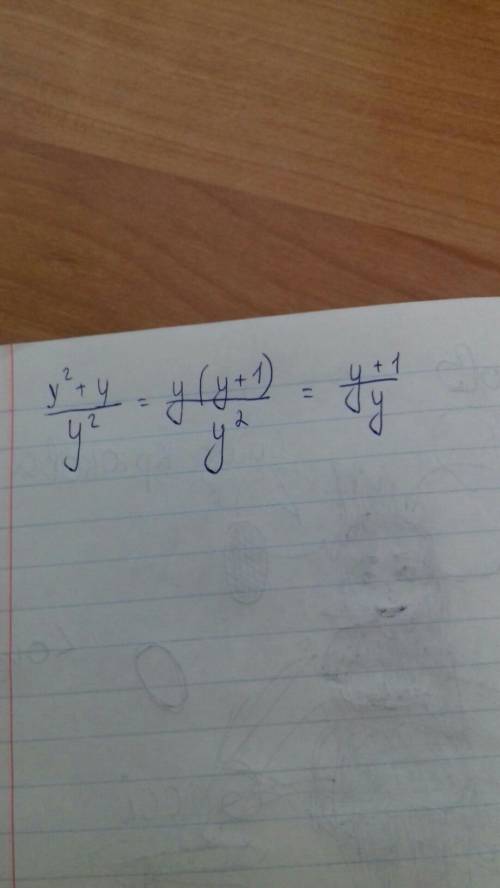 (y² + y)/y² = y(y+1)/y² = (y+1)/y